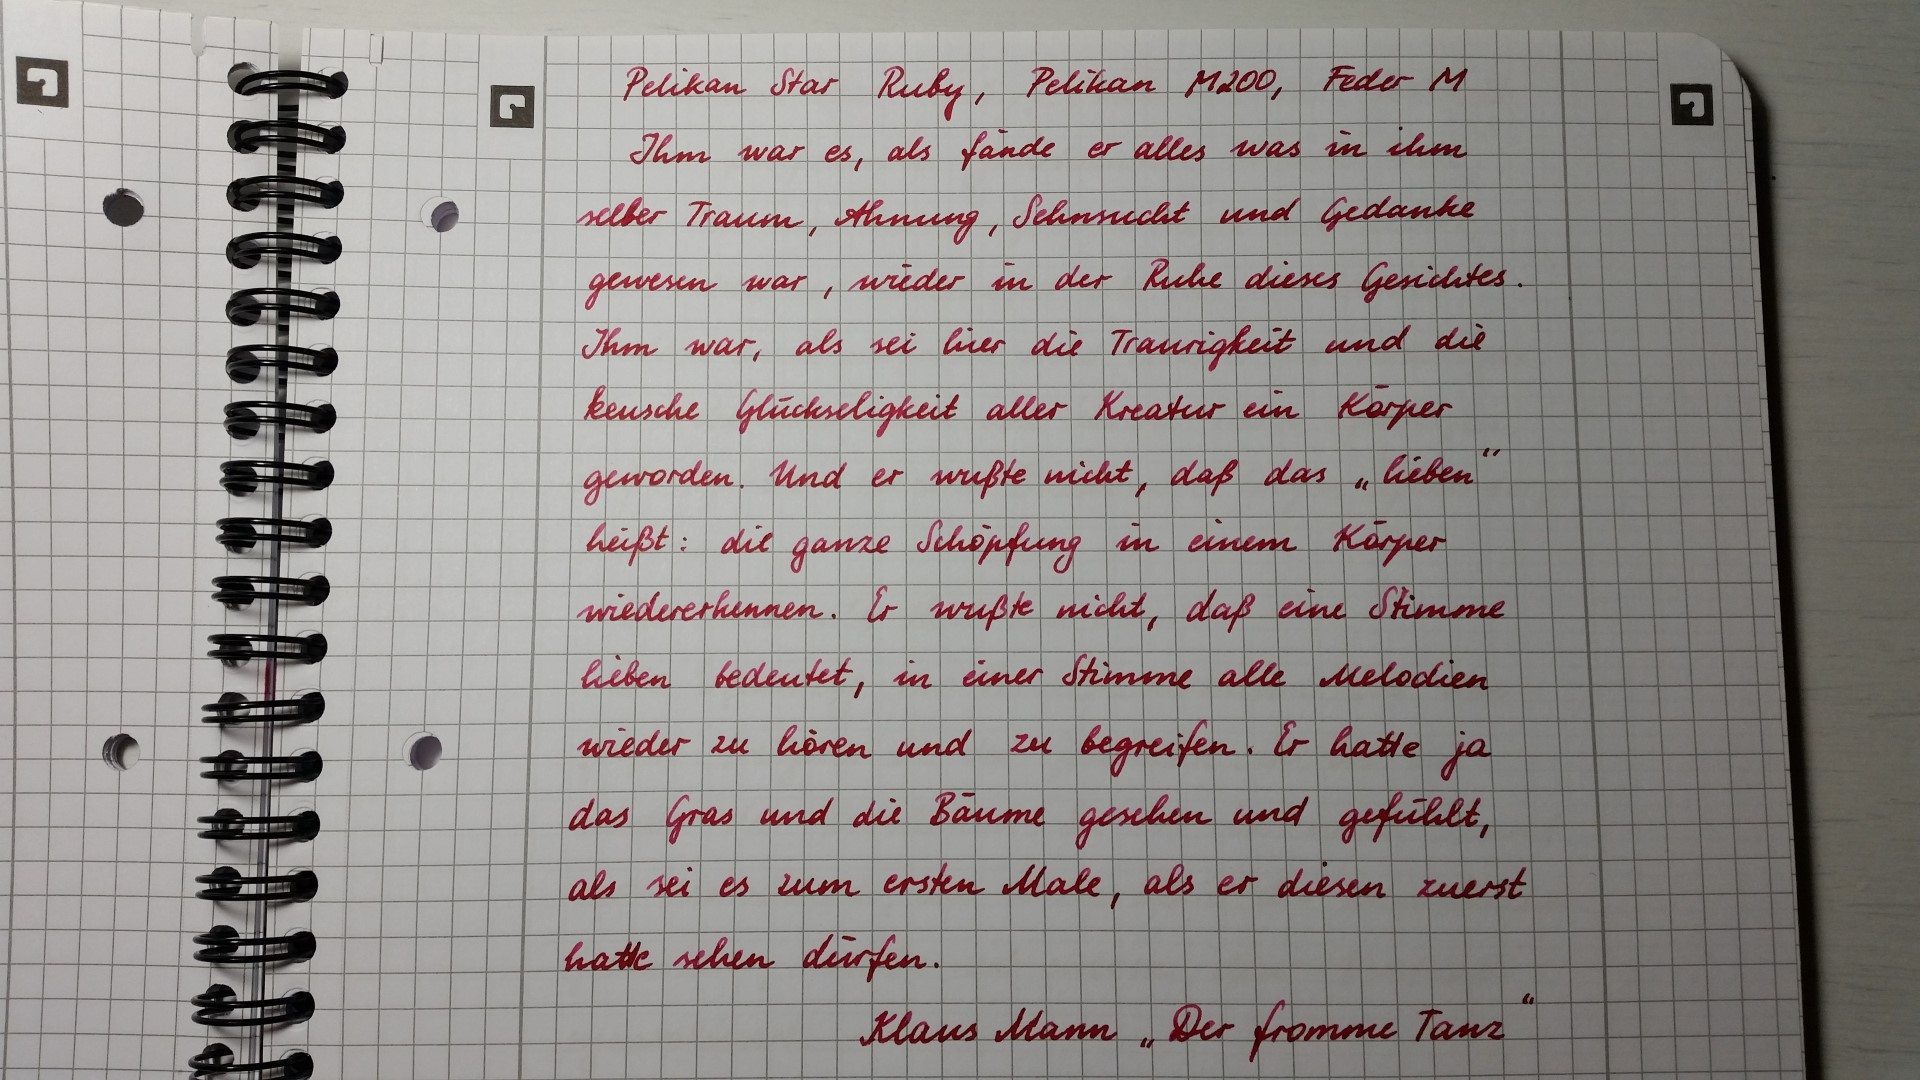 Pelikan Star Ruby, Pelikan M200, Feder M
Ihm war es, als fände er alles was in ihm
selber Traum, Ahnung, Sehnsucht und Gedanke
gewesen war, wieder in der Ruhe dieses Gesichtes.
Ihm war, als sei hier die Traurigkeit und die
keusche Glückseligkeit aller Kreatur ein Körper
geworden. Und er wußte nicht, daß das „lieben“
heißt: die ganze Schöpfung in einem Körper
wiedererkennen. Er wußte nicht, daß eine Stimme
lieben bedeutet, in einer Stimme alle Melodien
wieder zu hören und zu begreifen. Er hatte ja
das Gras und die Bäume gesehen und gefühlt,
als sei es zum ersten Male, als er diesen zuerst
hatte sehen dürfen.
Klaus Mann „Der fromme Tanz“